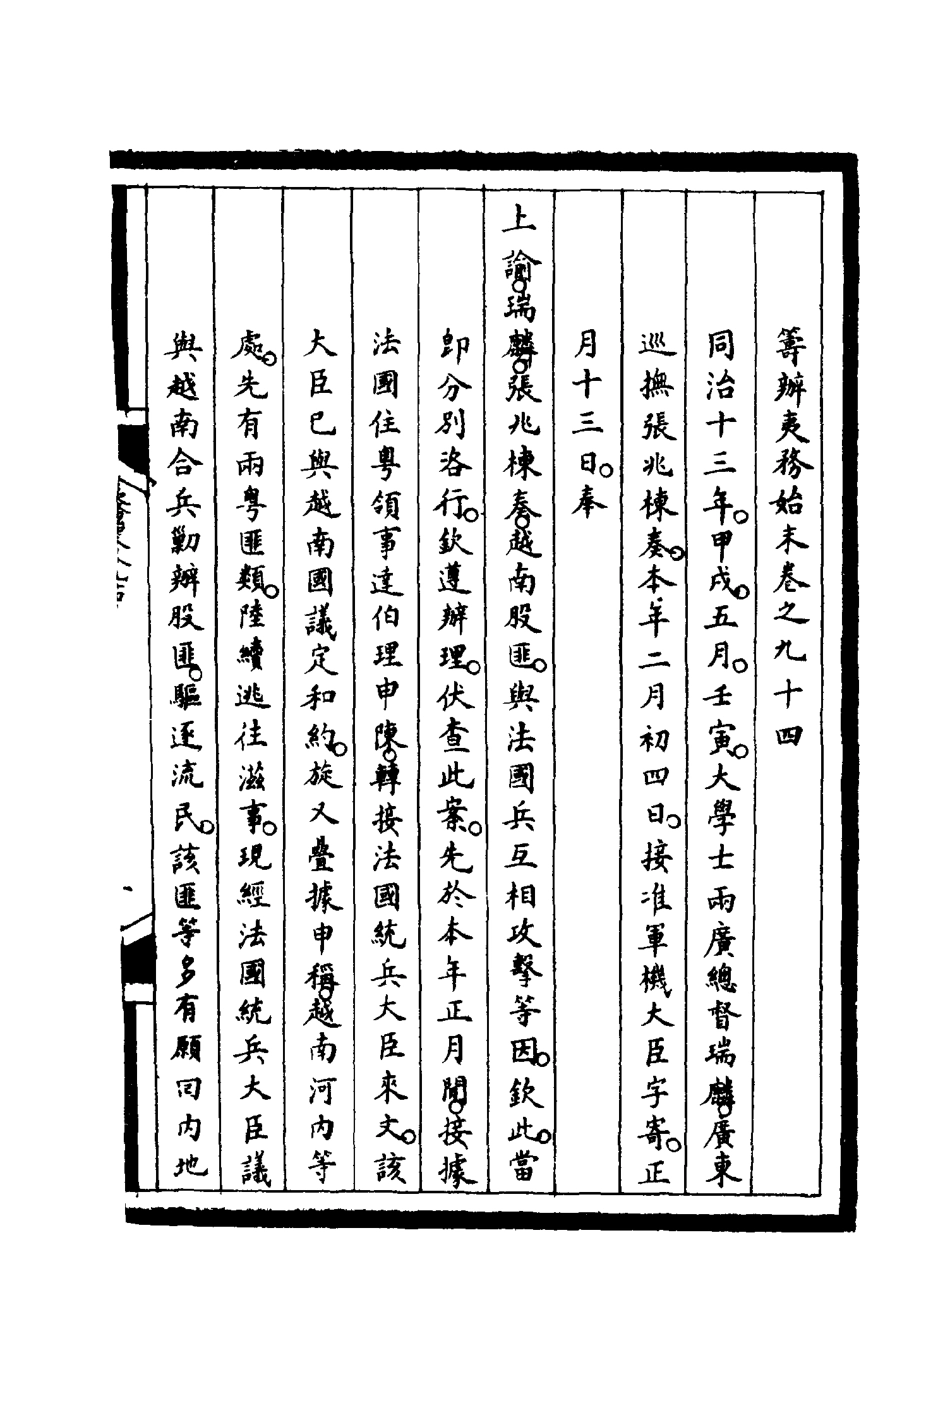 籌辦夷務始末卷之九十四
同治十三年。甲戌。五月。壬寅。大學士兩廣總督瑞麟。廣東
巡撫張兆棟奏。本年二月初四日。接准軍機大臣字寄。正
月十三日。奉
上諭。瑞麟。張兆棟奏。越南股匪。與法國兵互相攻擊等因。欽此。當
卽分別咨行。欽遵辦理。伏查此案。先於本年正月間。接據
法國住粵領事達伯理申陳。轉接法國統兵大臣來文。該
大臣已與越南國議定和約。旋又疊據申稱。越南河內等
處。先有兩粵匪類。陸續逃往滋事。現經法國統兵大臣議
與越南合兵勦辦股匪。驅逐流民。該匪等多有願回內地